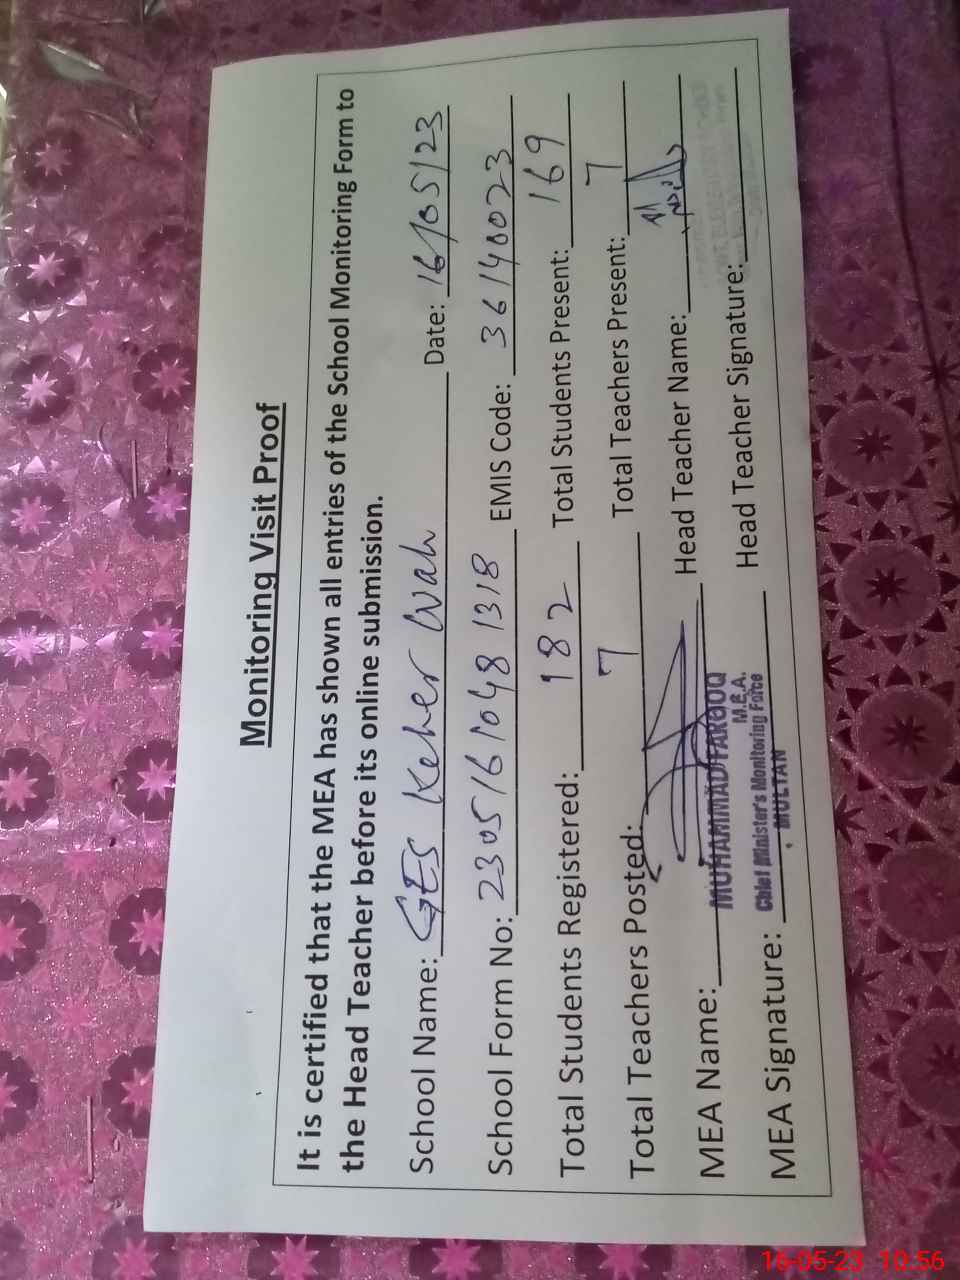 Monitoring Visit Proof
It is certified that the MEA has shown all entries of the School Monitoring Form to
the Head Teacher before its online submission.
School Name: GES Keher Wah Date: 16/05/23
School Form No: 230516 1048 1318 EMIS Code: 36140023
Total Students Registered: 182 Total Students Present: 169
Total Teachers Posted: 7 Total Teachers Present: 7
MEA Name: Head Teacher Name:
MUHAMMAD FAROOQ
M.E.A.
MEA Signature: Chief Minister's Monitoring Force Head Teacher Signature:
MULTAN
16-05-23 10:56